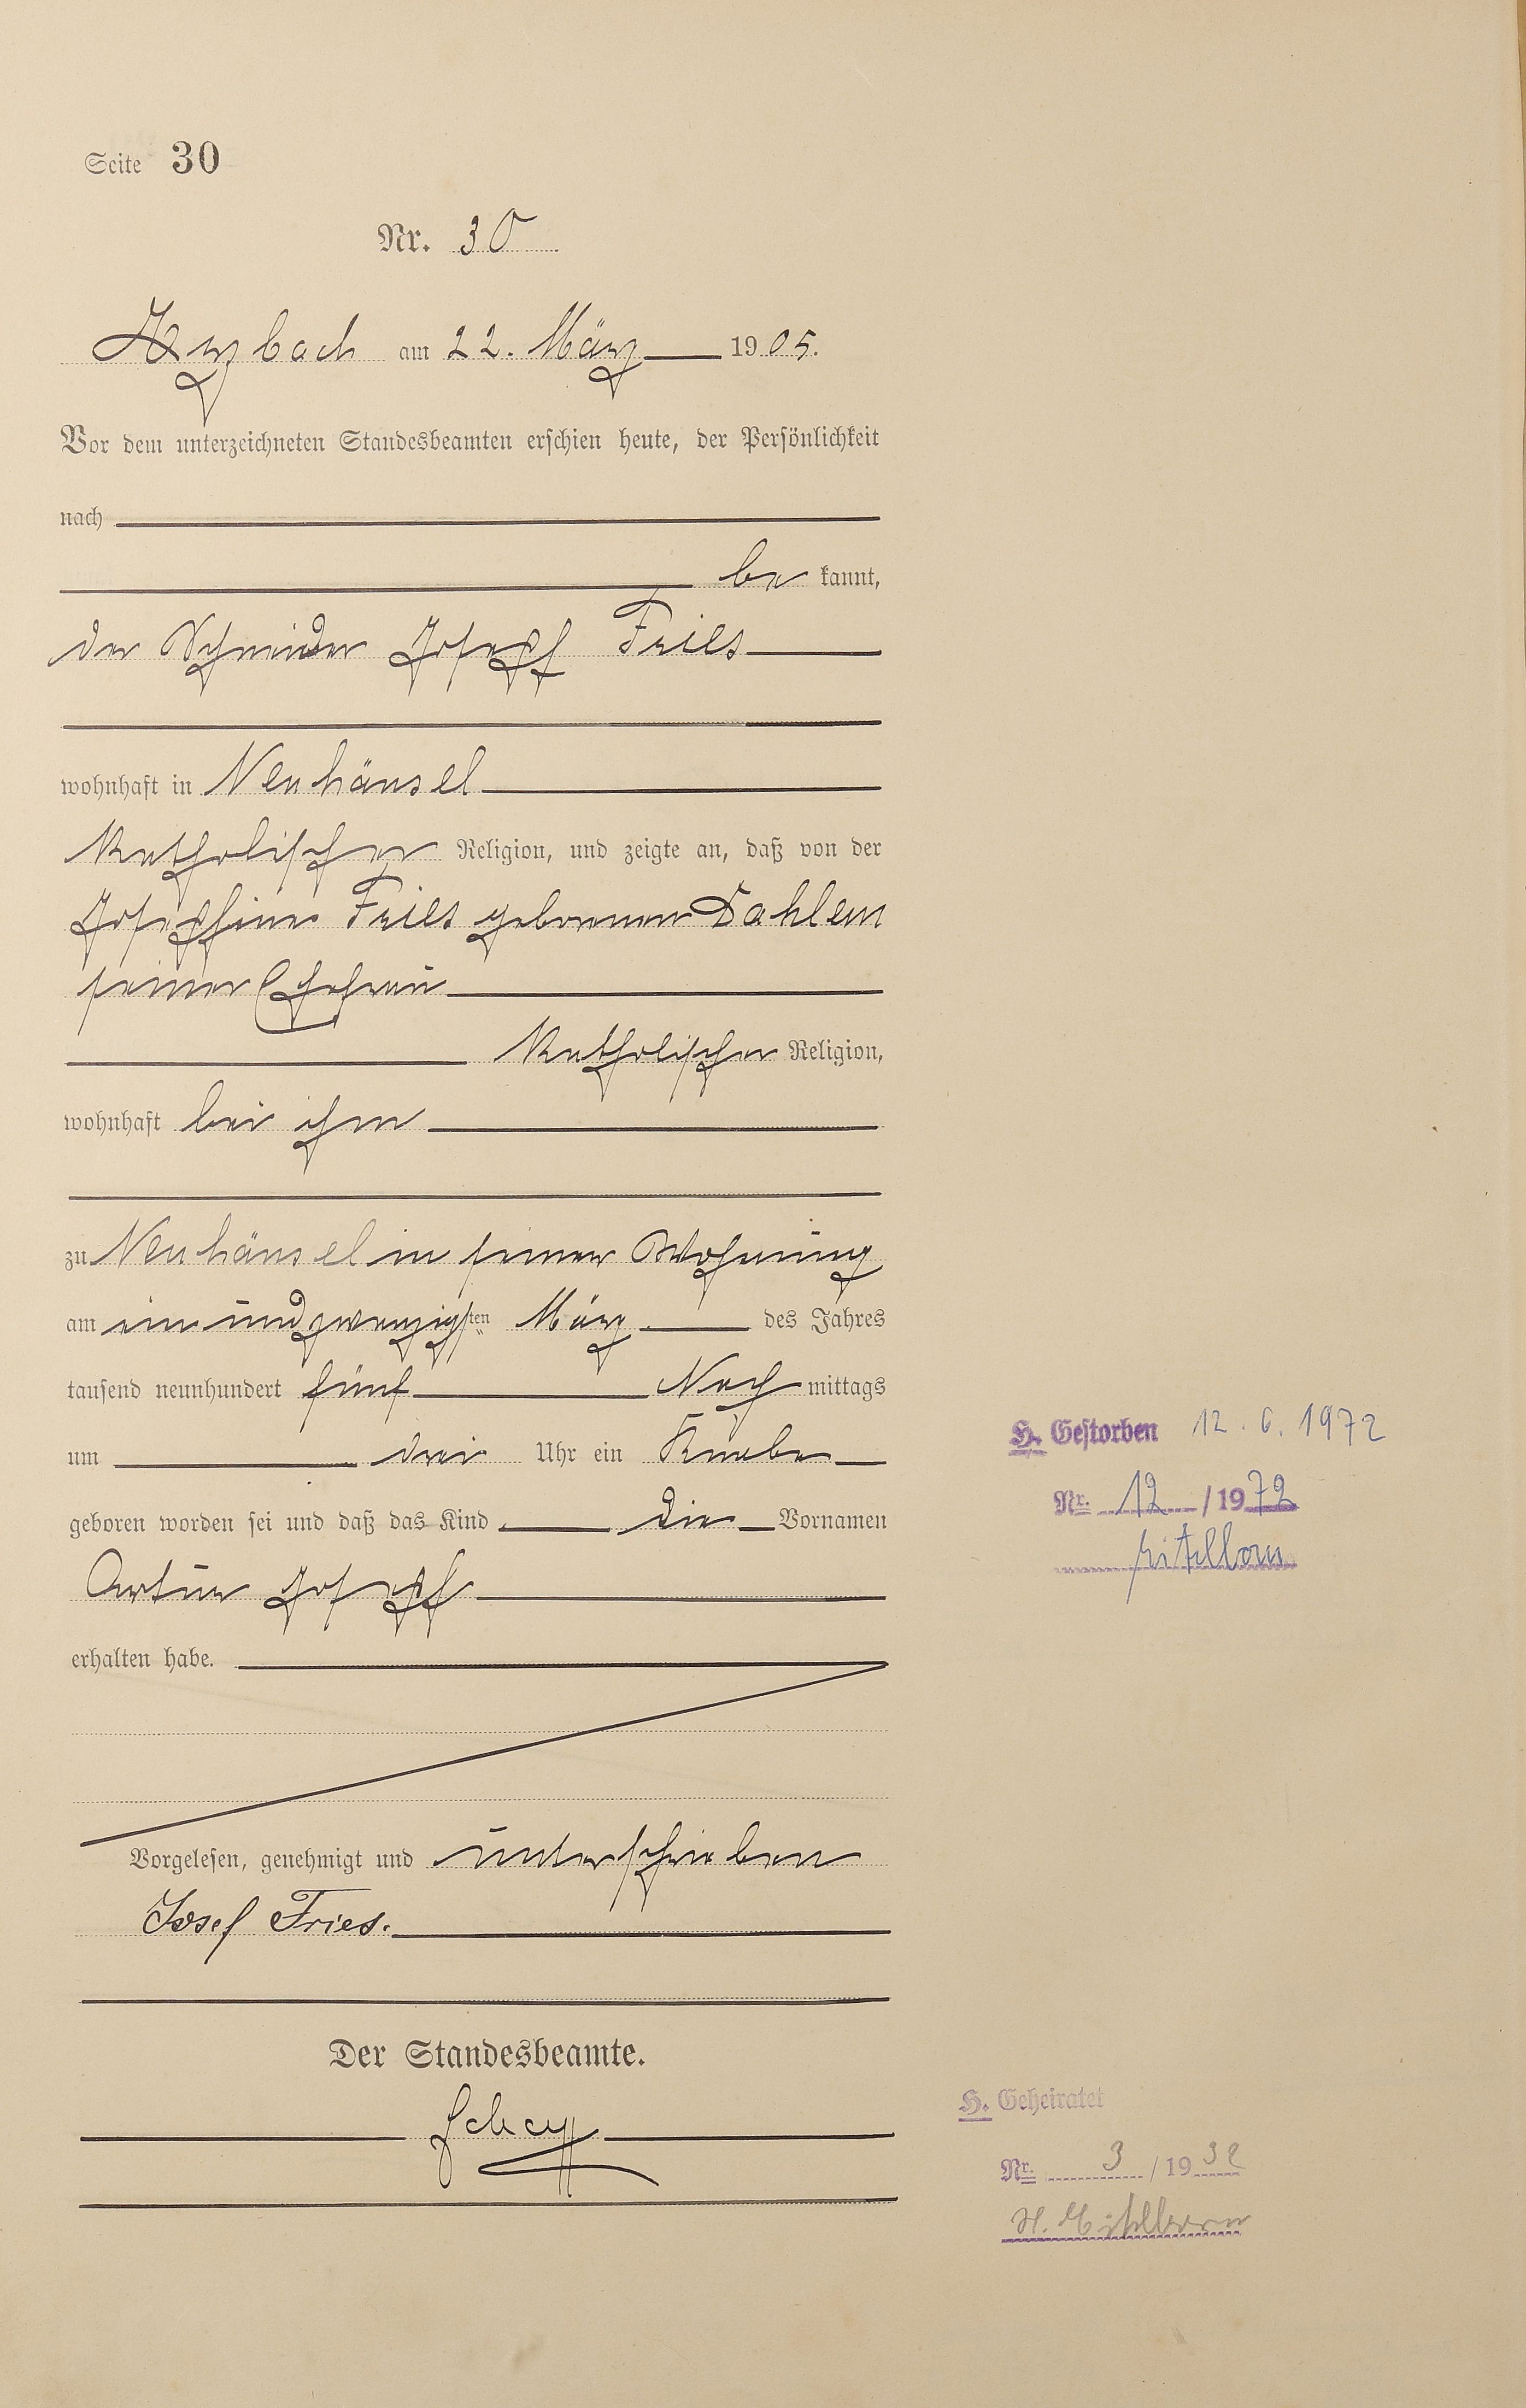 Seite 30
Nr. 30
Arzbach am 22. März 1905.
Vor dem unterzeichneten Standesbeamten erschien heute, der Persönlichkeit
nach
be kannt,
der Schneider Joseph Fries
wohnhaft in Neuhäusel
katholischer Religion, und zeigte an, daß von der
Josephine Fries geborenen Dahlem
seiner Ehefrau
katholischer Religion,
wohnhaft bei ihm
zu Neuhäusel in seiner Wohnung
am ein und zwanzigsten März des Jahres
tausend neunhundert fünf Nach mittags
um drei Uhr ein Knabe
geboren worden sei und daß das Kind die Vornamen
Artur Joseph
erhalten habe.
Vorgelesen, genehmigt und unterschrieben
Josef Fries.
Der Standesbeamte.
H. Gestorben 12.6.1972
Nr. 12 / 1972
Eitelborn
H. Geheiratet
Nr. 3 / 1932
Eitelborn